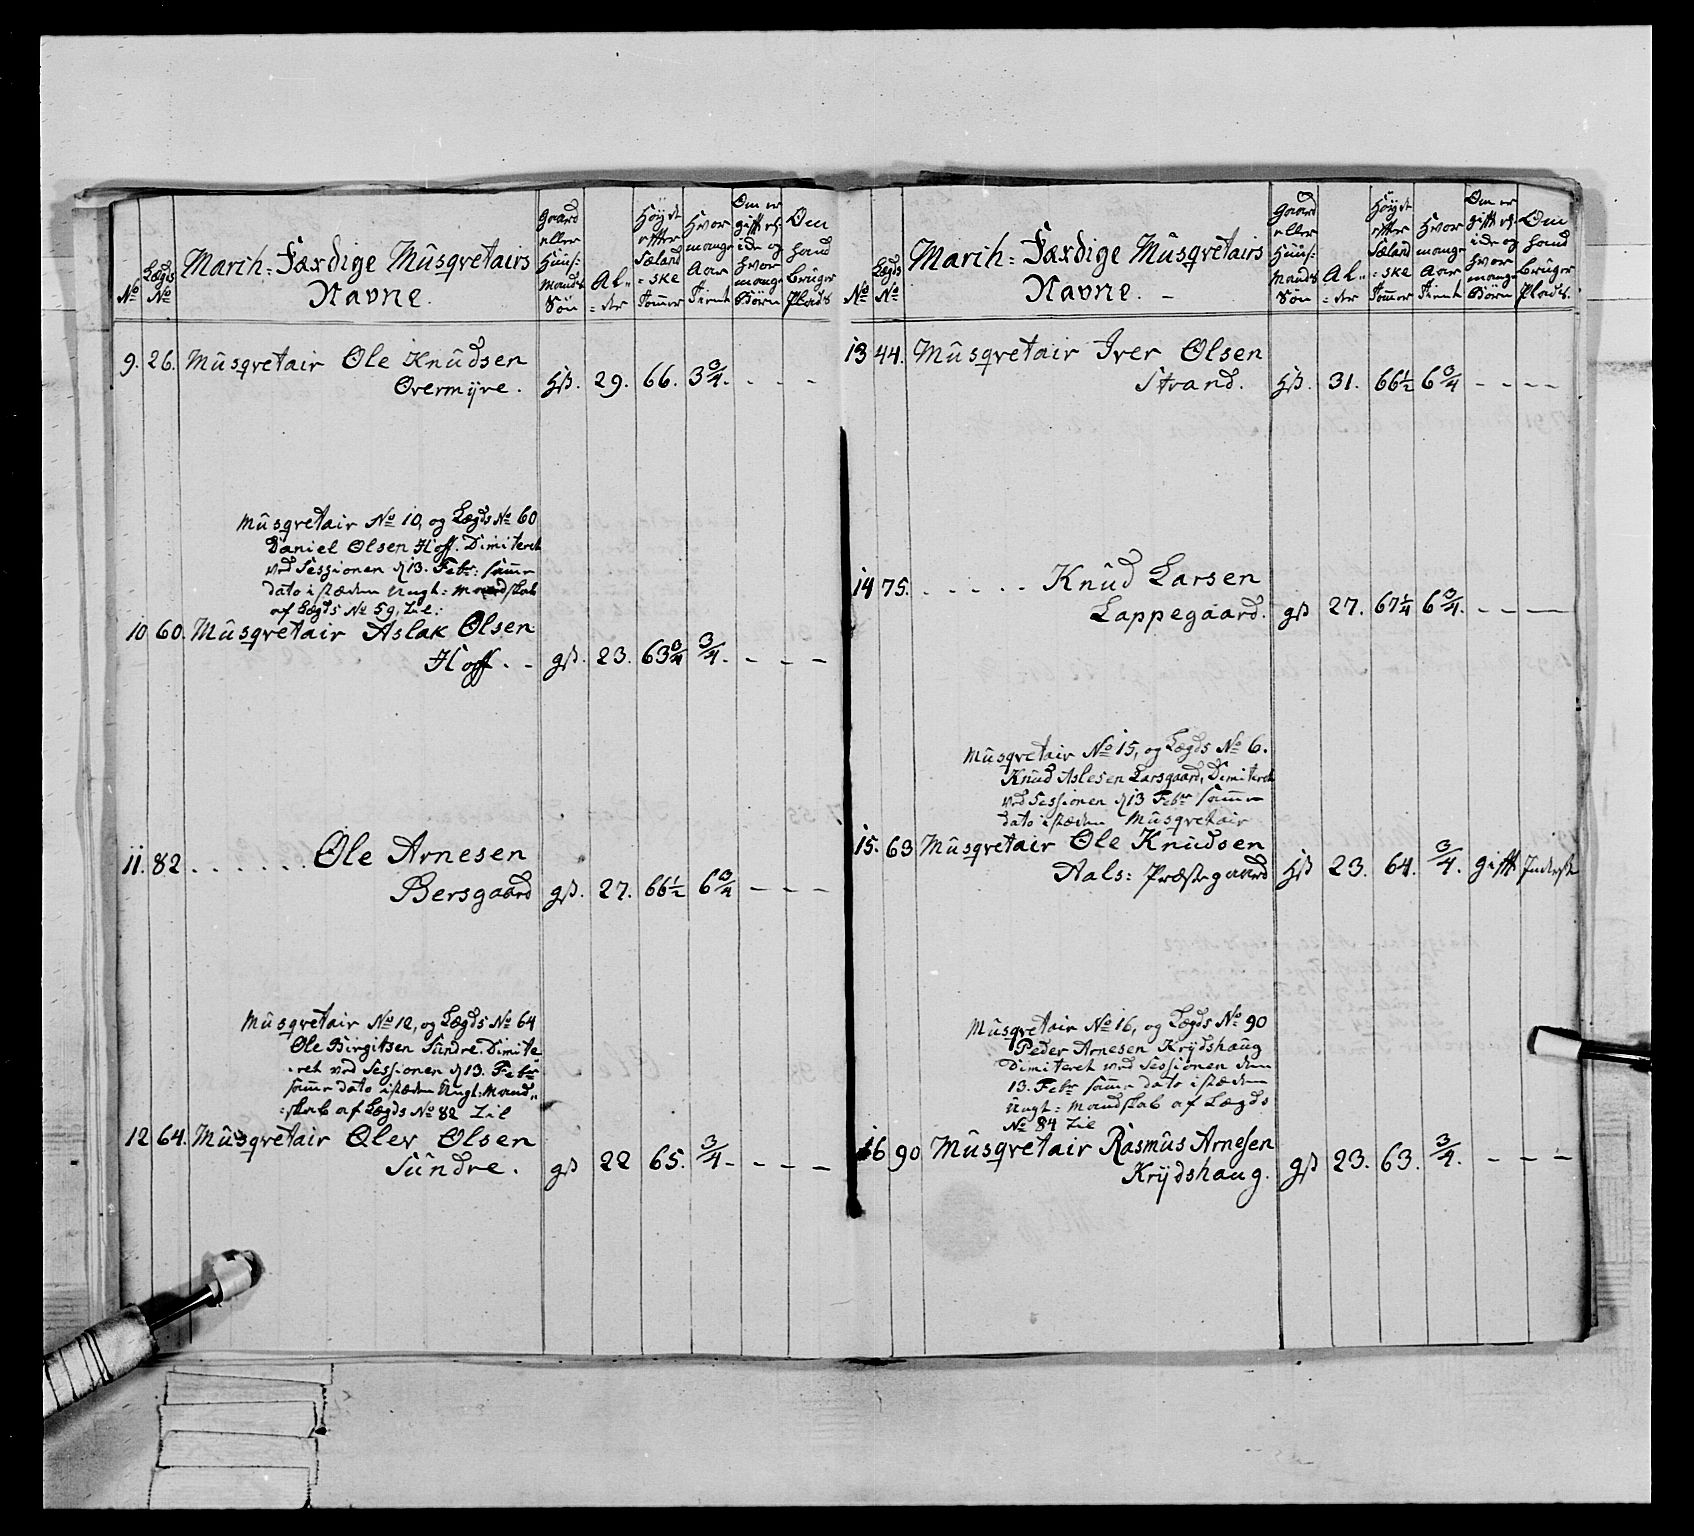 No
Lægds No
March: Færdige Musqvetairs
Navne.
Gaard eller Huus: Mands Søn
Al„ = der
Høyde efter Sæland = ske Tommer
Hvor mange Aar Tient
Om er gift el. ide og hvor mange Børn
Om hand bruger Plads
9. 26. Musqvetair Ole Knudsen
Overmyre. Hß. 29. 66. 3 3/4. - - -
Musqvetair No 10, og Lægds No 60
Daniel Olsen Hoff. Dimiteret
ved Sessionen d 13. Febr: samme
dato i stæden Ungt: Mandskab
af Lægds No 59, Zil:
10 60. Musqvetair Aslak Olsen
Hoff. - gß. 23. 63 3/4 3/4. - - -
11. 82 . . . . . . Ole Arnesen
Bersgaard gß. 27. 66 1/2 6 3/4 - - -
Musqvetair No 12, og Lægds No 64
Ole Birgitsen Sundre. Dimite„
:ret ved Sessionen d 13. Febr
samme dato i stæden Ungt: Mand„
:skab af Lægds No 82 Zil
12 64. Musqvetair Olev Olsen
Sundre. gß 22 65. 3/4 - - - -
No
Lægds No
March: Færdige Musqvetairs
Navne. -
Gaard eller Huus: Mands Søn
Al„ = der
Høyde efter Sæland = ske Tommer
Hvor mange Aar Tient
Om er gift el. ide og hvor mange Børn
Om hand bruger Plads.
13 44. Musqvetair Iver Olsen
Strand. Hß. 31. 66 1/2 6 3/4 - - - -
14 75. . . . . . Knud Larsen
Lappegaard. gß 27. 67 1/4 6 3/4. - - -
Musqvetair No 15, og Lægds No 6.
Knud Aslesen Larsgaard, Dimiteret
ved Sessionen d 13 Febr samme
dato i stæden Musqvetair
15. 63 Musqvetair Ole Knudsen
Aals: Præstegaard Hß 23. 64. 3/4. gift Inderste
Musqvetair No 16, og Lægds No 90
Peder Arnesen Krydshaug
Dimiteret ved Sessionen den
13. Febr samme dato i stæden
Ungt: Mandskab af Lægds
No 84 Zil
16 90 Musqvetair Rasmus Arnesen
Krydshaug. gß 23. 63. 3/4. - - -